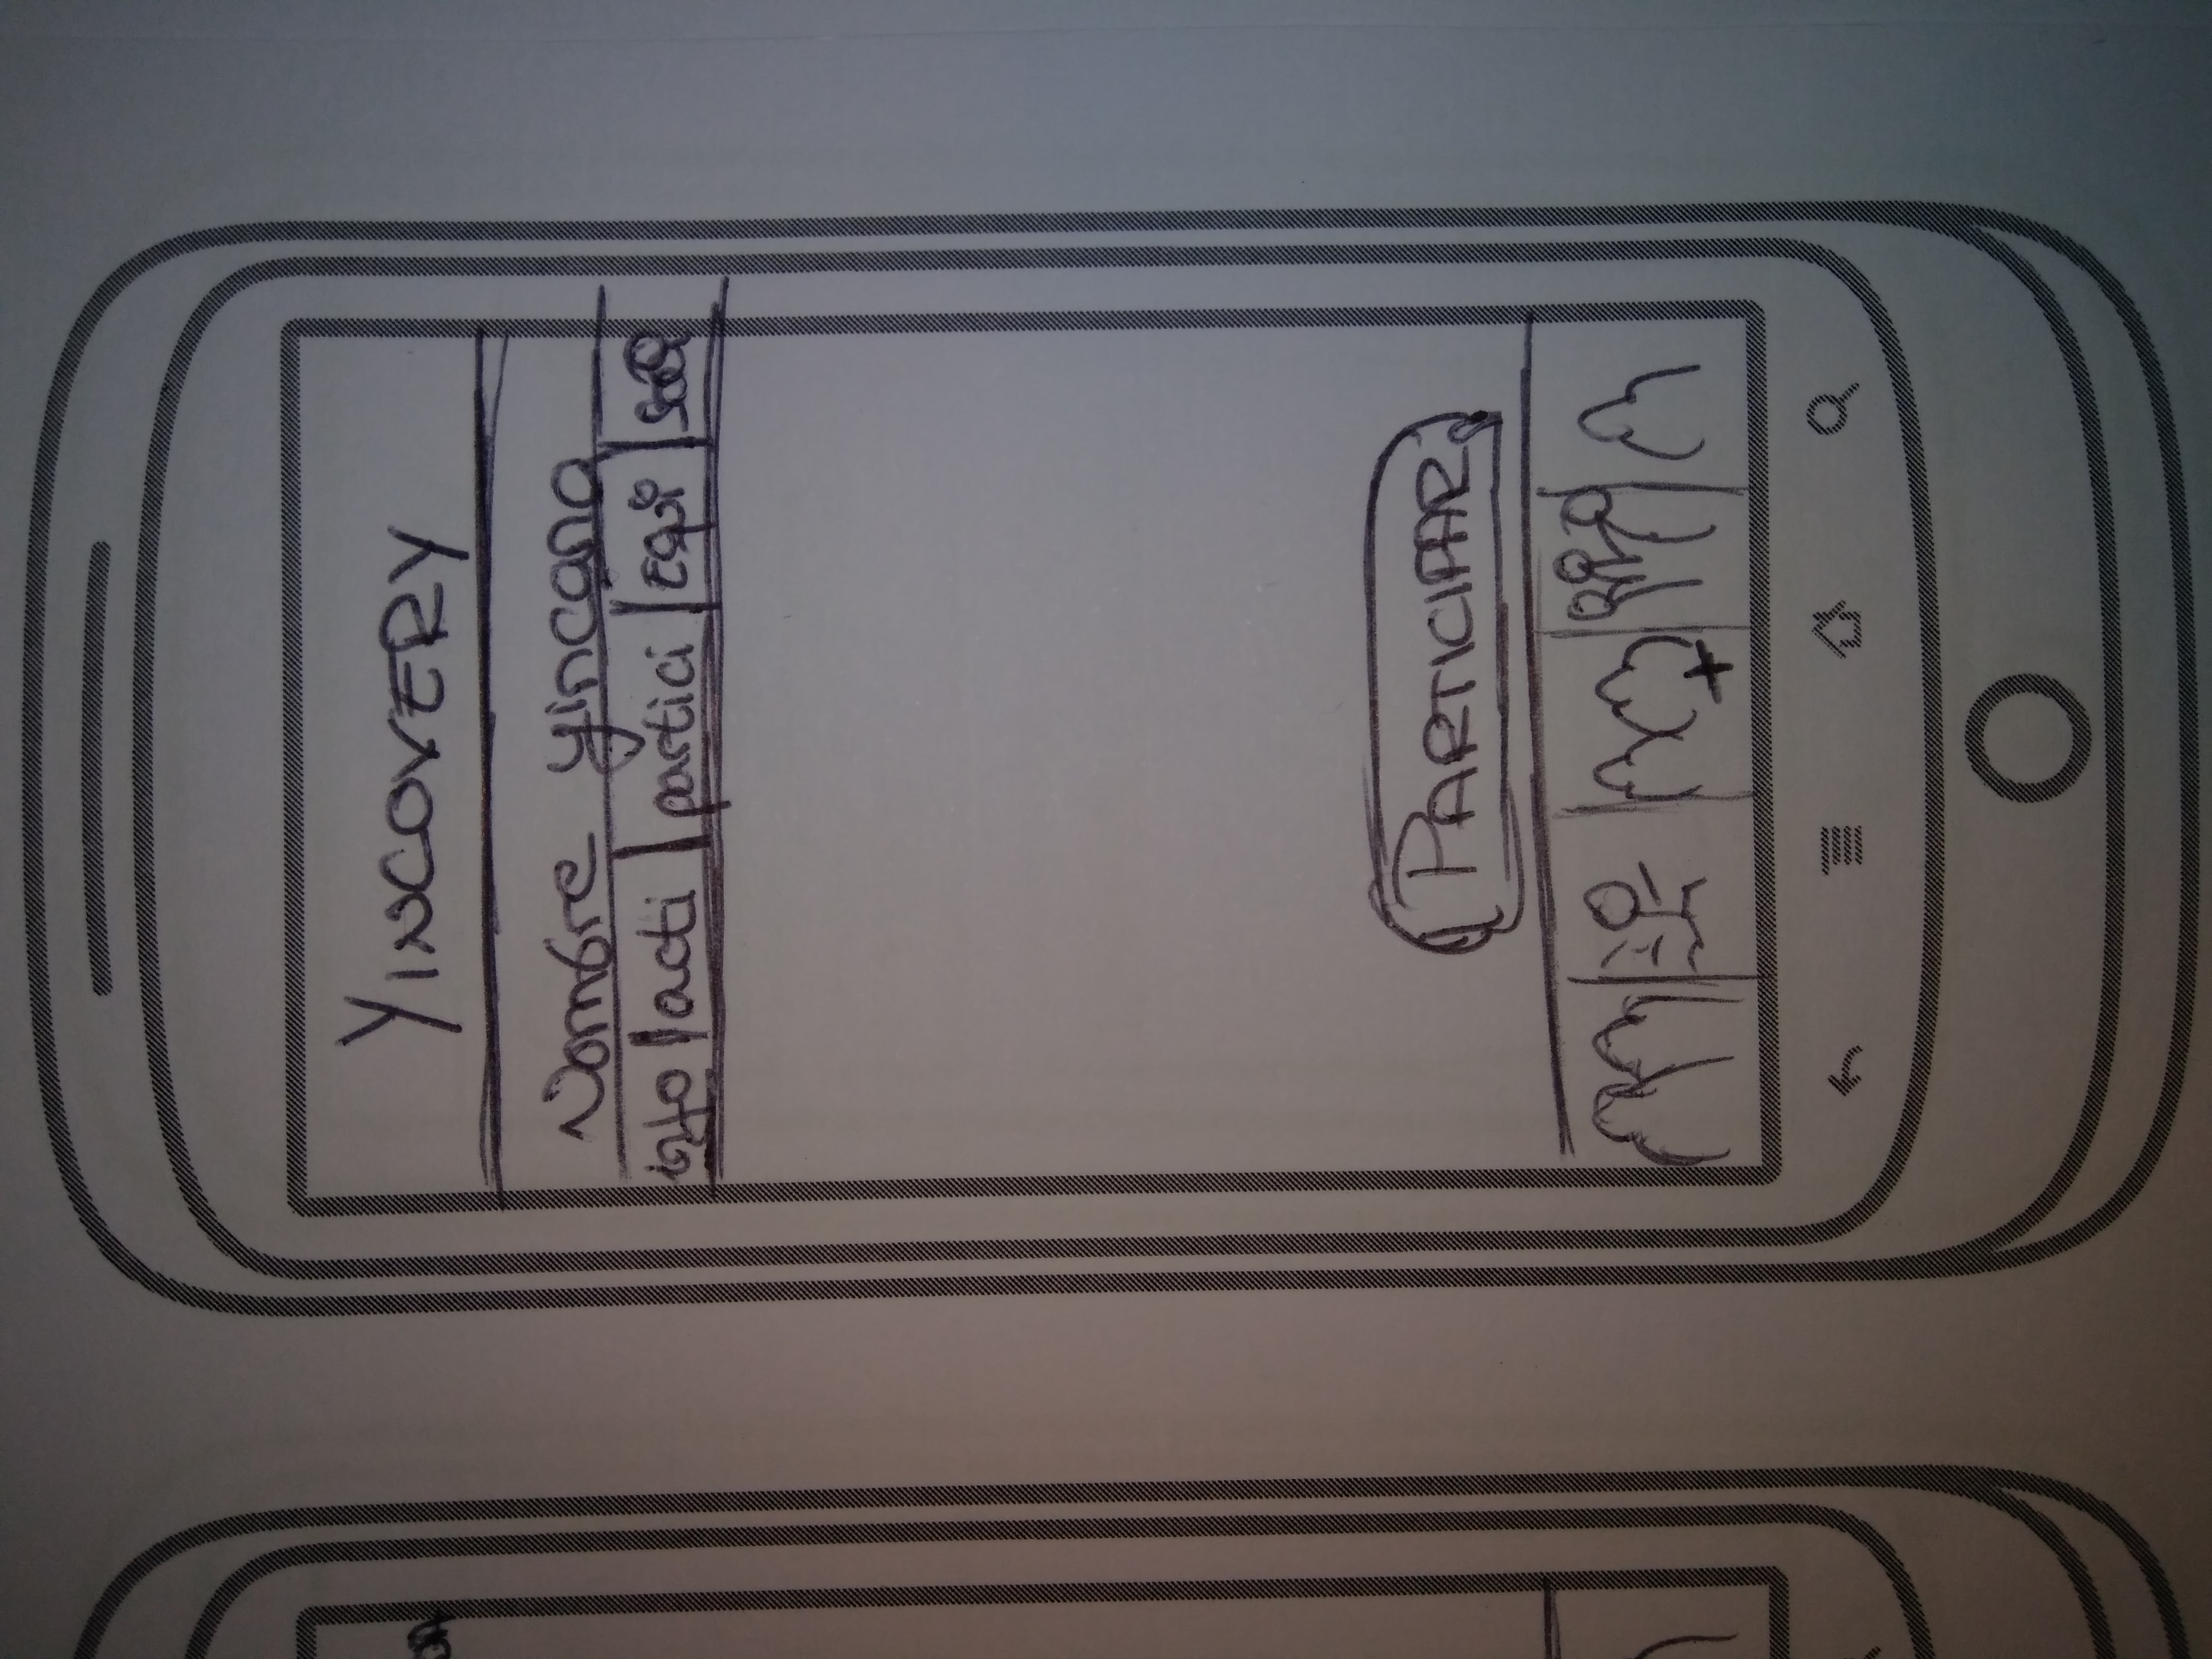 YINCOVERY
Nombre yincana
info | acti | partici | Equi
PARTICIPAR